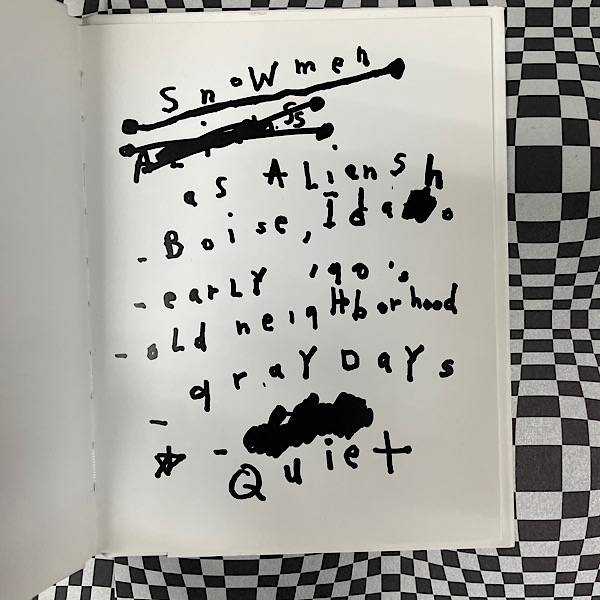 SnoWmen
as ALienS
- Boise, Idaho
- earLY '90's
- oLd neigHborhood
- graY DaYs
☆ - Quiet